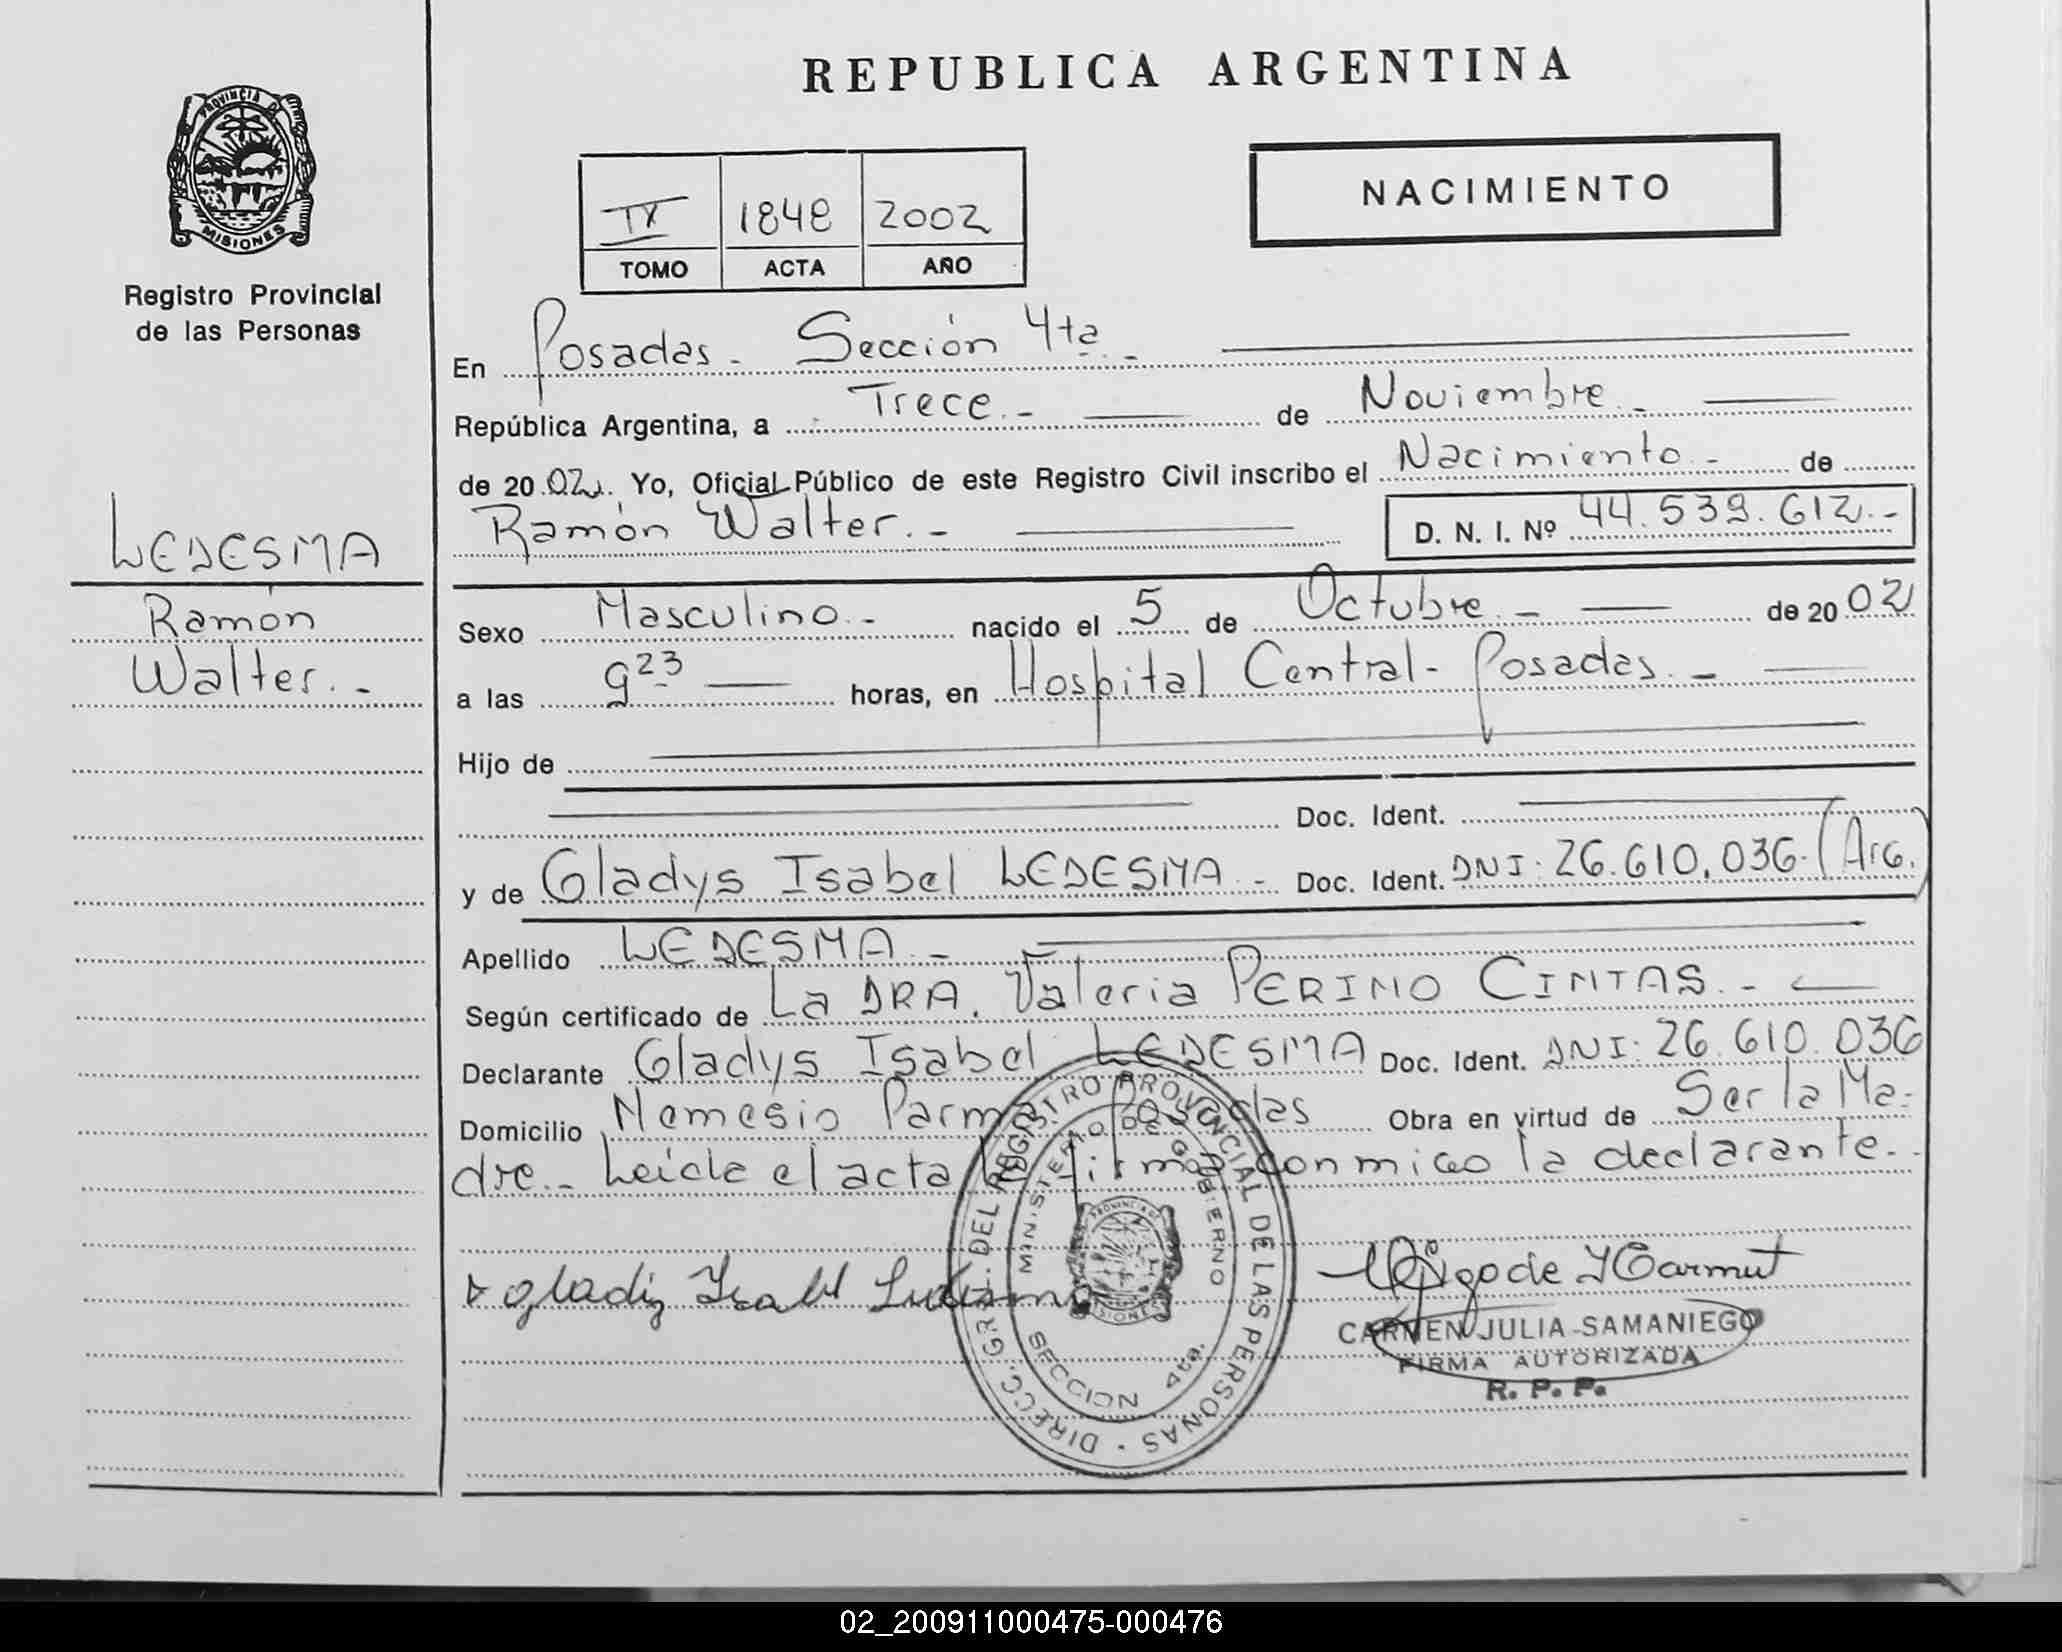 REPUBLICA ARGENTINA
PROVINCIA DE
MISIONES
Registro Provincial
de las Personas
IX 1848 2002
TOMO ACTA AÑO
NACIMIENTO
En Posadas. Sección 4ta.-
República Argentina, a Trece.- de Noviembre.-
de 2002. Yo, Oficial Público de este Registro Civil inscribo el Nacimiento.- de
Ramón Walter.- D. N. I. Nº 44.539.612.-
LEDESMA
Ramón
Walter.-
Sexo Masculino.- nacido el 5 de Octubre.- de 2002
a las 9 23 horas, en Hospital Central- Posadas.-
Hijo de
Doc. Ident.
y de Gladys Isabel LEDESMA.- Doc. Ident. DNI: 26.610.036.(Arg.)
Apellido LEDESMA.-
Según certificado de La DRA. Valeria PERINO CINTAS.-
Declarante Gladys Isabel LEDESMA Doc. Ident. DNI: 26.610.036
Domicilio Nemesio Parma Posadas Obra en virtud de Ser la Ma-
dre.- Leída el acta la firma conmigo la declarante.-
DIRECC. GRAL. DEL REGISTRO PROVINCIAL DE LAS PERSONAS
MINISTERIO DE GOBIERNO
SECCION 4ta.
CARMEN JULIA SAMANIEGO
FIRMA AUTORIZADA
R. P. P.
02_200911000475-000476